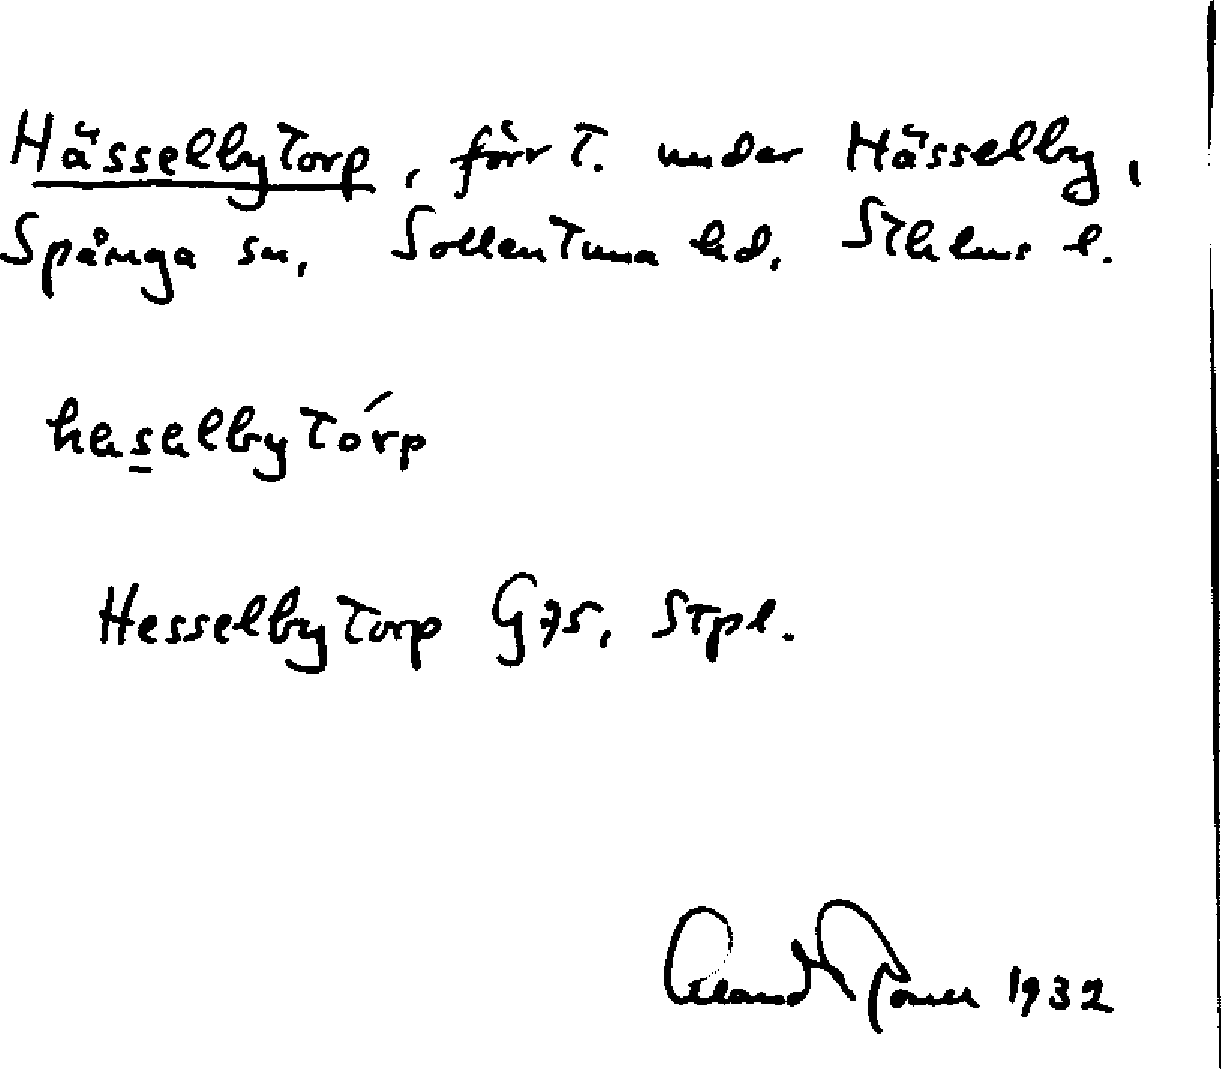 Hässelbytorp, förr t. under Hässelby,
Spånga sn, Sollentuna hd, Sthlms l.
hasalbytórp
Hesselbytorp G 75, Stpl.
1932